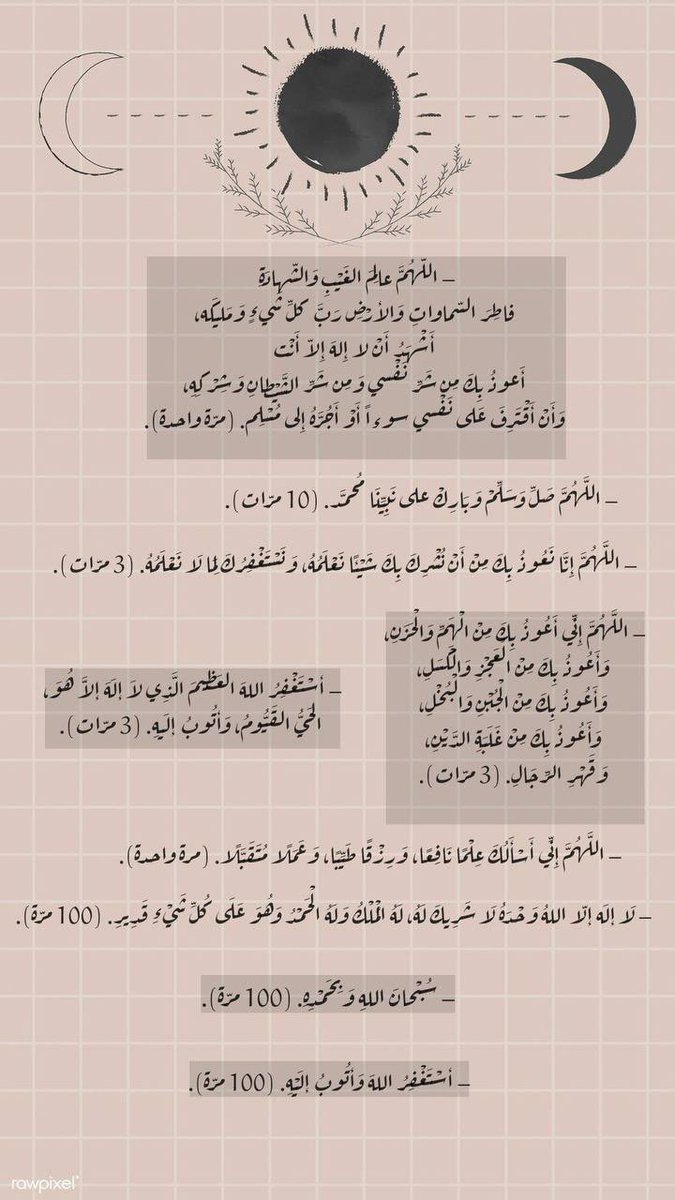 – اللّهُمَّ عالِمَ الغَيْبِ وَالشّهادَةِ
فاطِرَ السّماواتِ وَالأرْضِ رَبَّ كلِّ شَيءٍ وَمَليكَه،
أَشْهَدُ أَنْ لا إِلهَ إِلاّ أَنْت
أَعوذُ بِكَ مِن شَرِّ نَفْسي وَمِن شَرِّ الشَّيْطانِ وَشِرْكِهِ،
وَأَنْ أَقْتَرِفَ عَلى نَفْسي سوءاً أَوْ أَجُرَّهُ إِلى مُسْلِم. (مرّة واحدة).
– اللَّهُمَّ صَلِّ وَسَلِّمْ وَبَارِكْ على نَبِيِّنَا مُحمَّد. (10 مرّات).
– اللَّهُمَّ إِنَّا نَعُوذُ بِكَ مِنْ أَنْ نُشْرِكَ بِكَ شَيْئًا نَعْلَمُهُ، وَنَسْتَغْفِرُكَ لِمَا لَا نَعْلَمُهُ. (3 مرّات).
– اللَّهُمَّ إِنِّي أَعُوذُ بِكَ مِنَ الْهَمِّ وَالْحَزَنِ،
وَأَعُوذُ بِكَ مِنَ العَجْزِ وَالْكَسَلِ،
وَأَعُوذُ بِكَ مِنَ الْجُبْنِ وَالْبُخْلِ،
وَأَعُوذُ بِكَ مِنْ غَلَبَةِ الدَّيْنِ،
وَقَهْرِ الرِّجَالِ. (3 مرّات).
– أسْتَغْفِرُ اللهَ العَظِيمَ الَّذِي لاَ إلَهَ إلاَّ هُوَ،
الحَيُّ القَيُّومُ، وَأتُوبُ إلَيهِ. (3 مرّات).
– اللَّهُمَّ إِنِّي أَسْأَلُكَ عِلْمًا نَافِعًا، وَرِزْقًا طَيِّبًا، وَعَمَلًا مُتَقَبَّلًا. (مرة واحدة).
– لَا إلَه إلّا اللهُ وَحْدَهُ لَا شَرِيكَ لَهُ، لَهُ الْمُلْكُ وَلَهُ الْحَمْدُ وَهُوَ عَلَى كُلِّ شَيْءٍ قَدِيرِ. (100 مرّة).
– سُبْحانَ اللهِ وَبِحَمْدِهِ. (100 مرّة).
– أسْتَغْفِرُ اللهَ وَأتُوبُ إلَيْهِ. (100 مرّة).
rawpixel